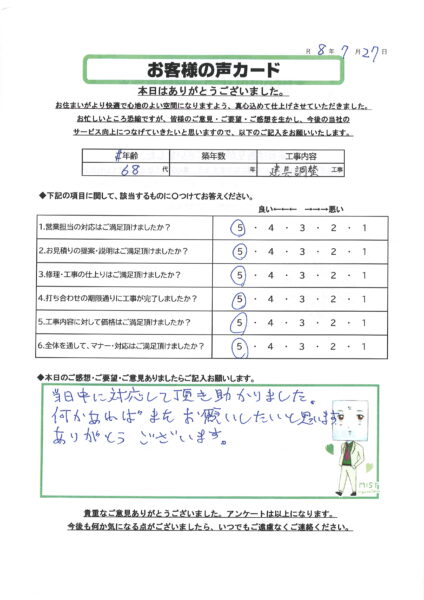 R 8年 7月27日
お客様の声カード
本日はありがとうございました。
お住まいがより快適で心地のよい空間になりますよう、真心込めて仕上げさせていただきました。
お忙しいところ恐縮ですが、皆様のご意見・ご要望・ご感想を生かし、今後の当社の
サービス向上につなげていきたいと思いますので、以下のご記入をお願いいたします。
年齢 築年数 工事内容
68 代 年 建具調整 工事
◆下記の項目に関して、該当するものに〇つけてお答えください。
良い←←← →→→悪い
1.営業担当の対応はご満足頂けましたか? 5 ・ 4 ・ 3 ・ 2 ・ 1
2.お見積りの提案・説明はご満足頂けましたか? 5 ・ 4 ・ 3 ・ 2 ・ 1
3.修理・工事の仕上りはご満足頂けましたか? 5 ・ 4 ・ 3 ・ 2 ・ 1
4.打ち合わせの期限通りに工事が完了しましたか? 5 ・ 4 ・ 3 ・ 2 ・ 1
5.工事内容に対して価格はご満足頂けましたか? 5 ・ 4 ・ 3 ・ 2 ・ 1
6.全体を通して、マナー・対応はご満足頂けましたか? 5 ・ 4 ・ 3 ・ 2 ・ 1
◆本日のご感想・ご要望・ご意見ありましたらご記入お願いします。
当日中に対応して頂き助かりました。
何かあればまたお願いしたいと思います
ありがとうございます。
貴重なご意見ありがとうございました。アンケートは以上になります。
今後も何か気になる点がございましたら、いつでもご遠慮なくご連絡ください。